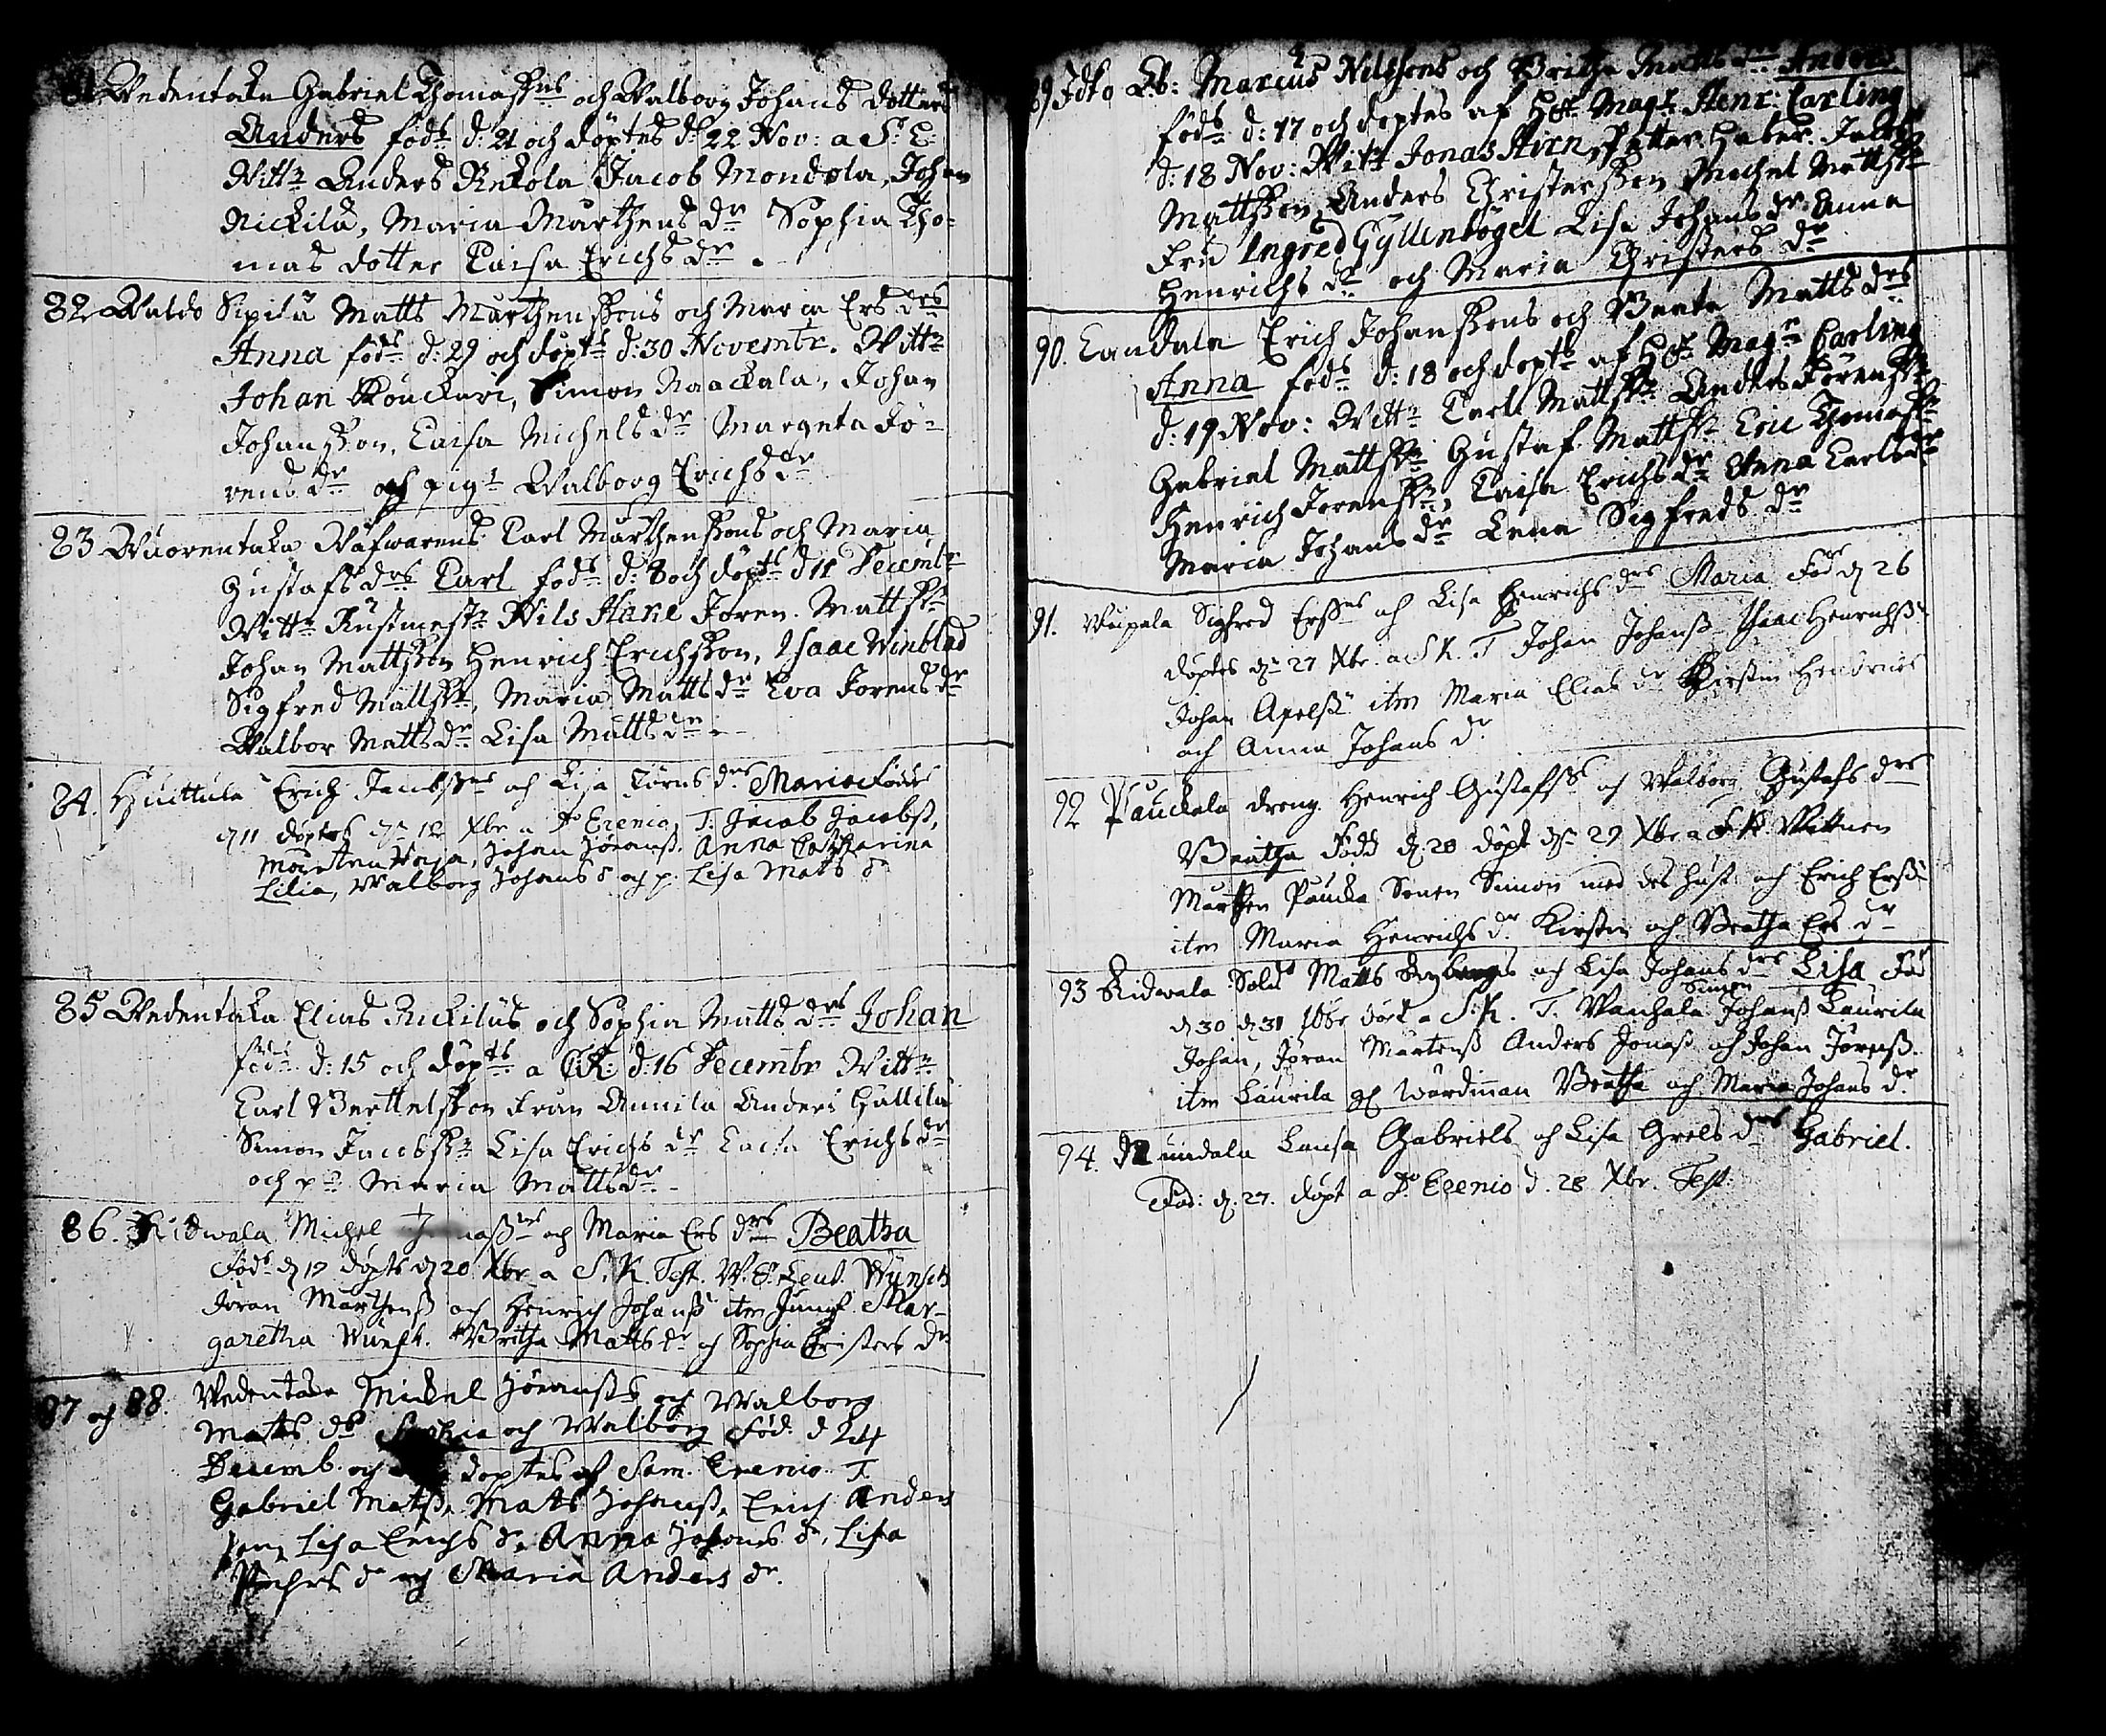 81 Vedentaka Gabriel Thomasssns och Walborg Johans dotters
Anders födr d: 21 och döptes dr 22 Nov: a S. E.
Wittn Anders Rekola Jacob Mondola, Johan
Nickilä, Maria Mårthens dr Sophia Tho-
mas dotter Caisa Erichs dr
82 Waldo Sipilä Matts Mårthenssons och Maria Ers drs
Anna föds d: 29 och döpts d: 30 Novembr. Wittn
Johan Kouckari, Simon Naackala, Johan
Johansson, Caisa Michelsdr Margeta Jö-
rens dr och pigt Walborg Erichsdr
83 Wuorentaka Carl Mårthenssons och Maria
Gustafs drs Carl föds d: 8 och döpts d 11 Decembr
Wittn Rustmestr Nils Hane Jören Mattssn
Johan Mattsson Henrich Erichsson, Isaac Winblad
Sigfred Mattssn, Maria Mattsdr Eva Jörensdr
Walbor Mattsdr Lisa Mattsdr
84. Huittula Erich Jacobssns och Lisa Jörns drs Maria födes
d 11 döptes dn 12 Xbr a Do Erenio, T. Jacob Jacobss,
Mårten, Johan Jöranss. Anna Catharina
Lilia, Walborg Johans d och p. Lisa Mats dr
85 Vedentaka Elias Nickiläs och Sophia Matts drs Johan
födr d: 15 och döpts a C.K: d: 16 Decembr Wittn
Carl Berttelsson från Annila Anders Hallila
Simon Jacobssn Lisa Erichs dr Caisa Erichsdr
och p: Maria Mattsdr
86. Kidwala Michel och Maria Ers drs Beatha
Födr d 19 döpts d 20 Xbr a S.K. Test. Leut. Wünsch
Jöran Mårthenss och Henrich Johanss itm Jungf. Mar-
garetha Wünsch. Britha Matts dr och Sophia Christers dr
87 och 88. Vedentaka Mickel Jöranss och Walborg
Matts dr Sophia och Walborg Föd. d 24
Decemb. och döptes af Sam. Erenio T.
Gabriel Matss, Mats Johanss, Erich Anders
son, Lisa Erichs dr, Anna Johans dr, Lisa
dr och Maria Anders dr.
89 Marcus Nilssons och Britha Matts drs Anders
födr d: 17 och döptes af Magr Henr: Carling
d: 18 Nov: Wittn Jonas Hirn, Petter Jacob
Mattsson, Anders Christersson Michel Mattssn
Fru Ingred Gyllenbögel Lisa Johansdr Anna
Henrichs dr och Maria Christers dr
90. Laudala Erich Johanssons och Beata Matts drs
Anna födr d: 18 och döpts af Magr Carling
d: 19 Nov: Wittn Carl Mattssn Anders Jörenssn
Gabriel Mattssn Gustaf Mattssn Eric Thomassn
Henrich Jörenssn, Caisa Erichsdr Anna Carlsdr
Maria Johansdr Lena Sigfreds dr
91. Sigfred Erssns och Lisa Henrichs drs Maria Föd d 26
döptes dn 27 Xbr. a S K. T Johan Johanss Isaac Henrichss
Johan Apelss itm Maria Elias dr Kirstin
och Anna Johans dr
92 Pauckala dreng Henrich Gustafss och Walborg Gustafs drs
Beatha Född d. 28 döpt dn 29 Xbr a Wittnen
Mårthen Paucka Sonen Simon med des hust. och Erich Erss
itm Maria Henrichs dr. Kirstin och Beatha Ers dr
93 Kidwala Soldt Matts och Lisa Johans drs Lisa Föd
d 30 d 31 Xbr döpt a S.K. T. Simon Johanss Laurila
Johan, Jöran Mårtenss Anders Jonass och Johan Jörenss.
itm Laurila Beatha och Maria Johans dr
94. Lansa Gabriels och Lisa Grels drs Gabriel.
Föd: d. 27. döpt a Do Erenio d. 28 Xbr. Test.